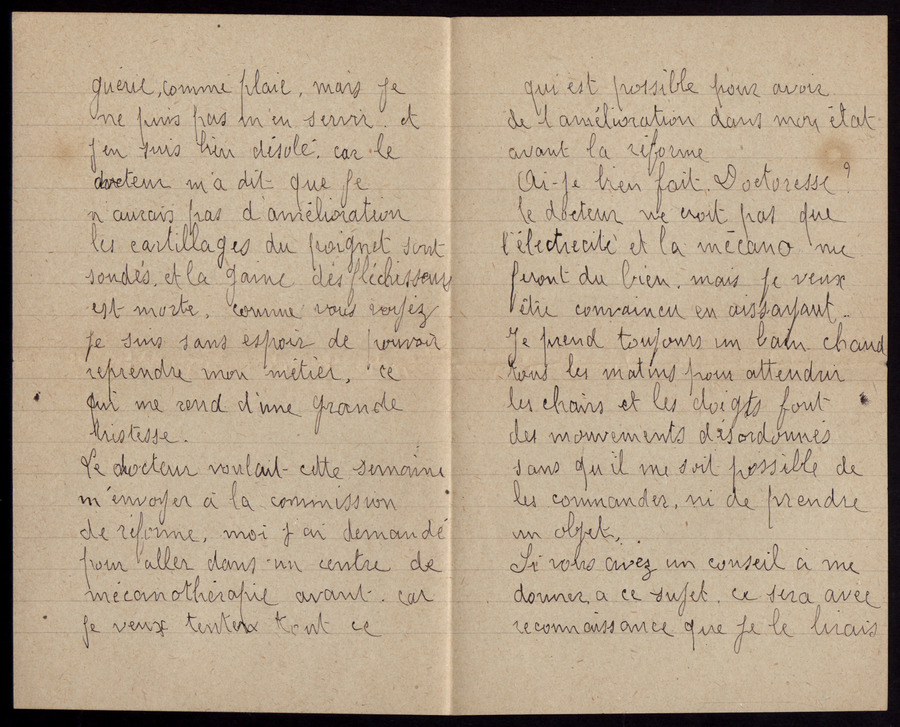 guérie, comme plaie, mais je
ne puis pas m'en servir. et
j'en suis bien désolé. car le
docteur m'a dit que je
n'aurais pas d'amélioration
les cartillages du poignet sont
soudés, et la gaine des fléchisseurs
est morte, comme vous voyez
je suis sans espoir de pouvoir
reprendre mon métier, ce
qui me rend d'une grande
tristesse.
Le docteur voulait cette semaine
m'envoyer à la commission
de réforme, moi j'ai demandé
pour aller dans un centre de
mécanothérapie avant. car
je veux tenter tout ce
qui est possible pour avoir
de l'amélioration dans mon état
avant la réforme
Ai-je bien fait, Doctoresse ?
le docteur ne croit pas que
l'électrecité et la mécano me
feront du bien. mais je veux
être convaincu en aissayant..
Je prend toujours un bain chaud
tous les matins pour attendrir
les chairs et les doigts font
des mouvements désordonnés
sans qu'il me soit possible de
les commander, ni de prendre
un objet..
Si vous avez un conseil à me
donner, a ce sujet. ce sera avec
reconnaissance que je le lirais